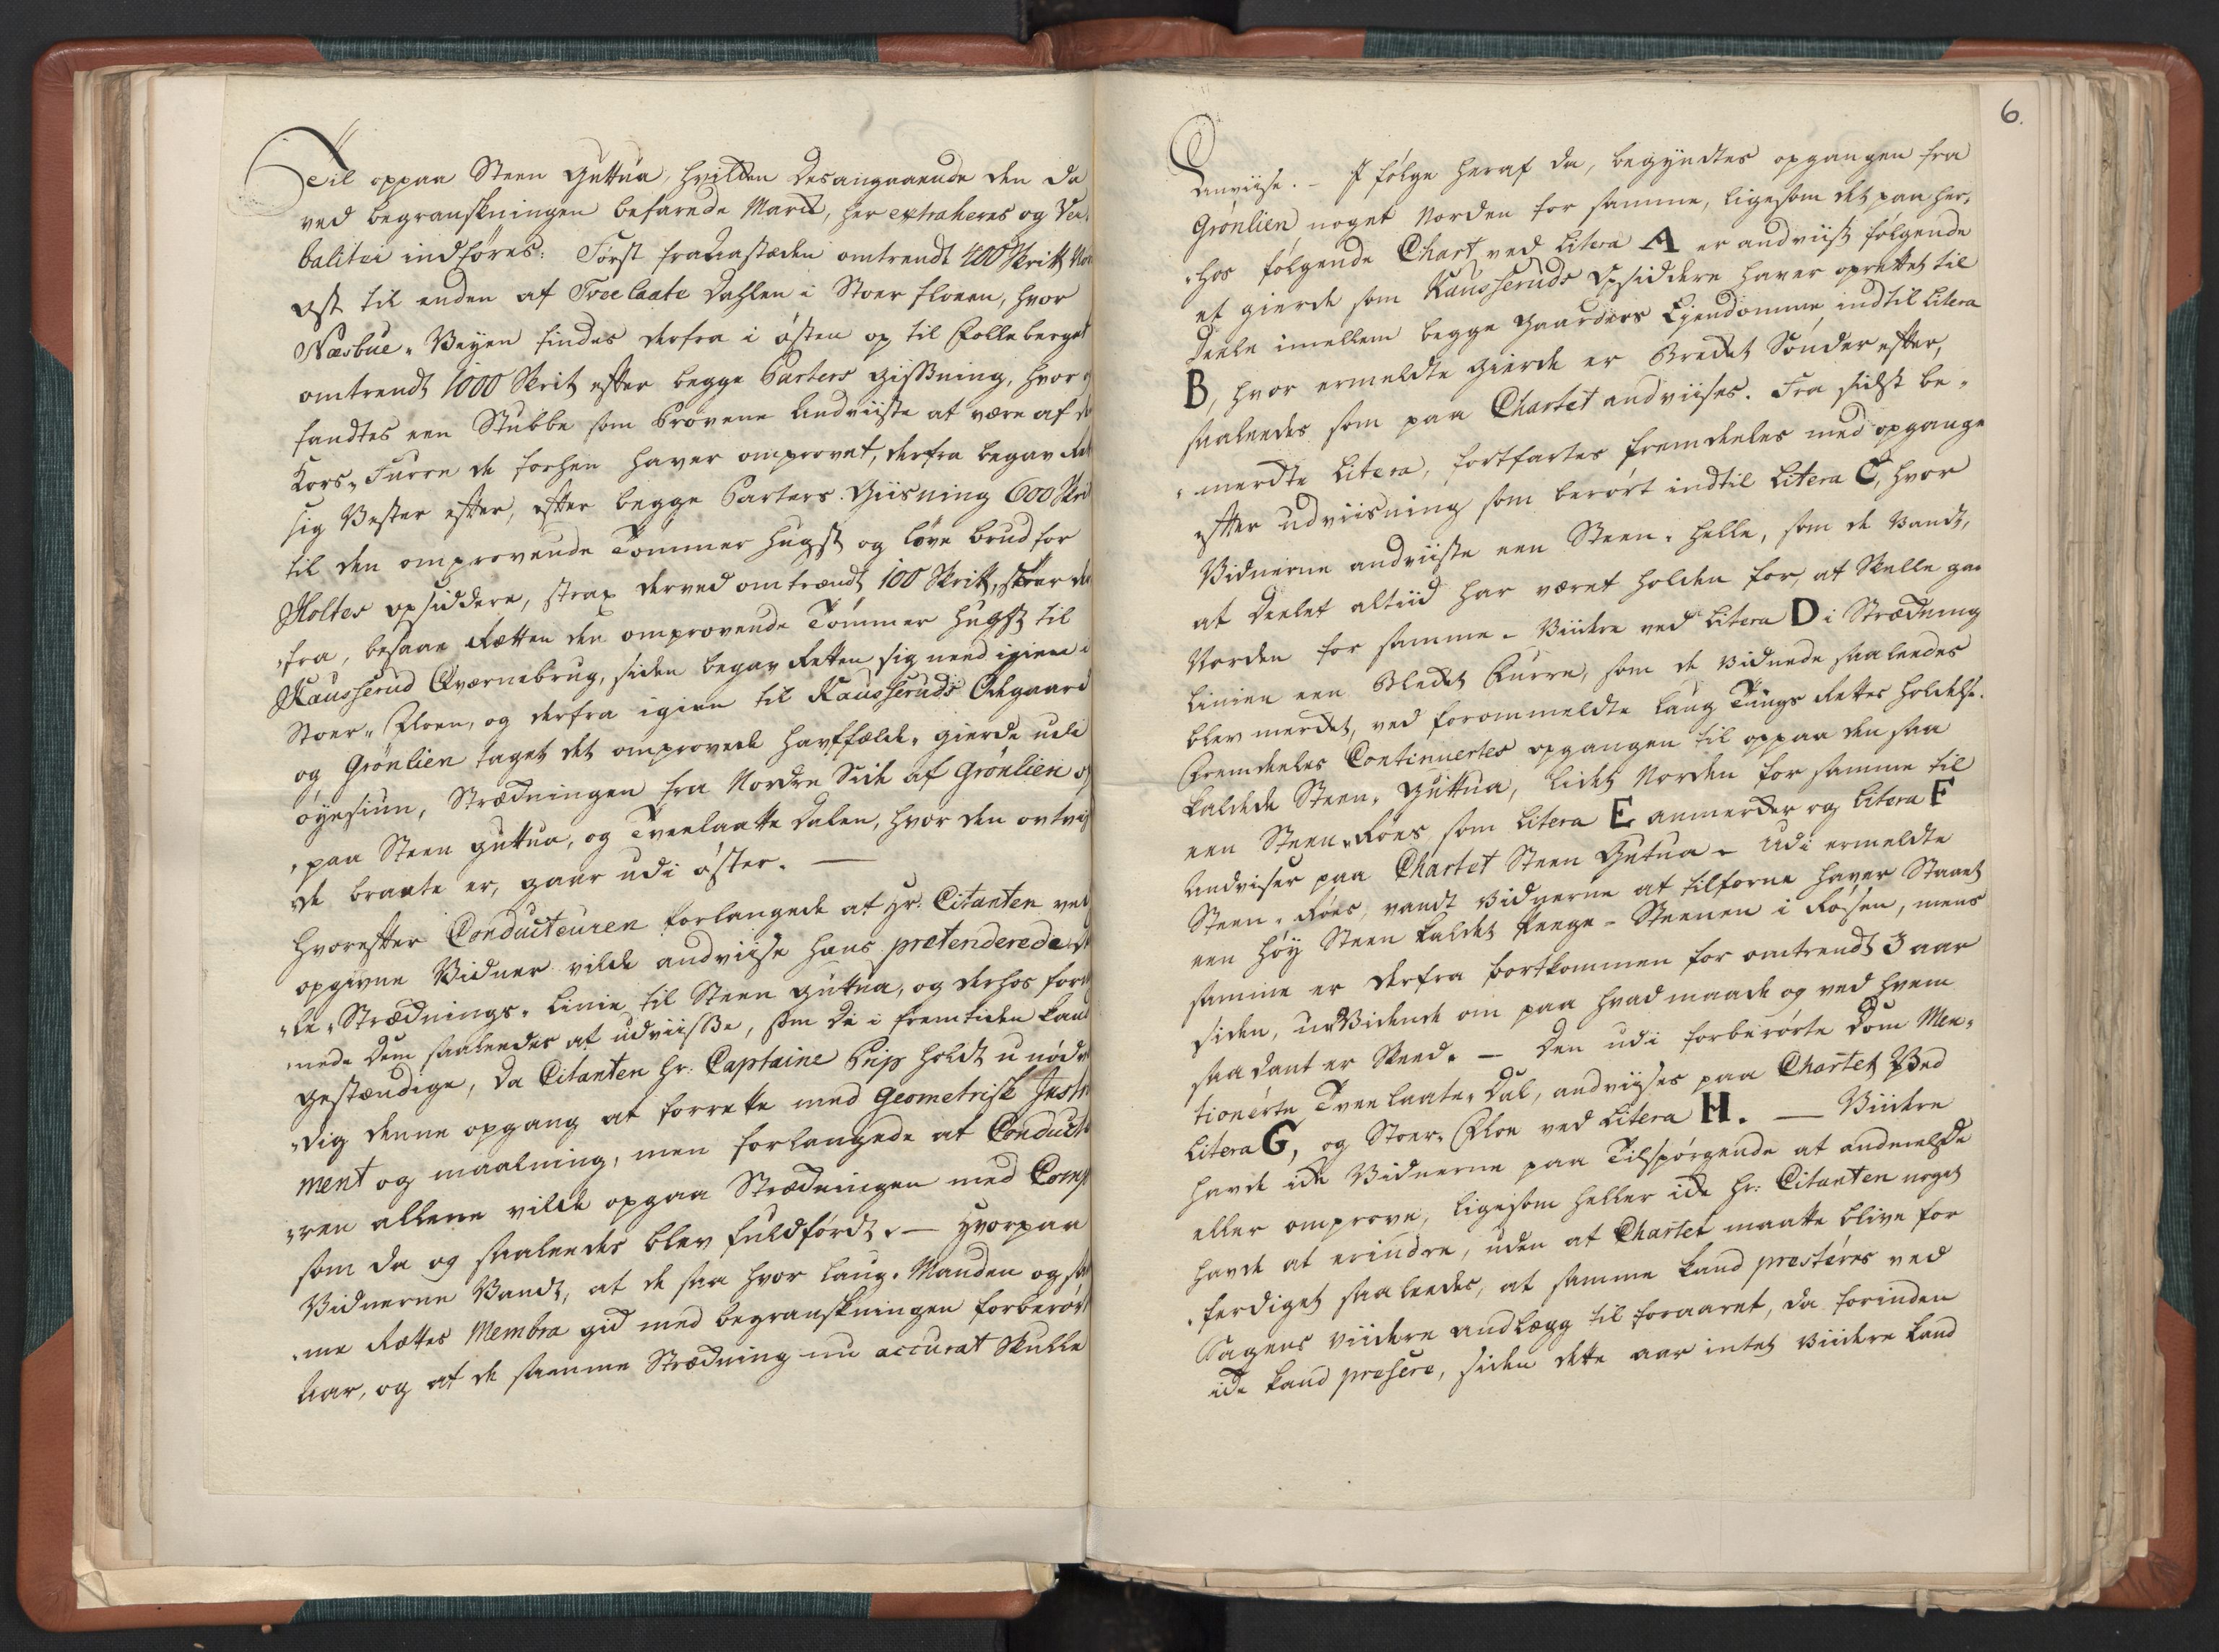 Til oppaa Steen Guttua, hvilken desangaaende den da
ved begranskningen befarede Marck, her extraheres og Ver
baliter indføres: Først fra Aastæden omtrendt 400 Skrit Nor
ost til enden af Tveelaate Dahlen i Stoer floeen, hvor
Næsbue-Veyen findes derfra i østen op til Kolleberget
omtrendt 1000 Skrit efter begge Parters gissning, hvor
fandtes een Stubbe som Prøvene Andviiste at være af
Kors-Furre de forhen haver omprovet, derfra begav Ret
sig Vester efter, efter begge Parters Giisning 600 Skrit
til den omprovende Tømmer hugst og løve brud for
Holtes opsiddere, strax derved omtrendt 100 Skrit, der
fra, besaae Retten den omprovende Tømmer Hugst til
Kausserud Qværnebrug, siden begav Retten sig need igien i
Stoer-Floen, og derfra igien til Kausseruds Ødegaard
og Grønlien taget det omprovede havffælde-gierde udi
øyesiun, Strækningen fra Nordre Side af Grønlien op
paa Steen guttua, og Tveelaatte Dalen, hvor den
de braate er, gaar udi øster. —
Hvorefter Conducteuren forlangede at Hr. Citanten ved
opgivne Vidner vilde andviise hans prætenderede
le-Streknings-Linie til Steen guttua, og derhos for
mede dem saaleedes at udviisse, som de i fremtiden kand
gestændige, da Citanten Hr. Captaine Prip holdt unød
dig denne opgang at forrette med Geometrisk Instru
ment og maalning, men forlangede at Conducteu
ren allene vilde opgaa Strækningen med Comp
som da og saaleedes blev fuldført. — Hvorpaa
Vidnerne Vandt, at de saa hvor laug-Manden og sam
me Rettes Membra gik med begranskningen forberørt
Aar, og at de samme Strækning nu accurat skulle
6.
anviise. - I følge heraf da, begyndtes opgangen fra
Grønlien noget Norden for samme, ligesom det paa her
hos følgende Chart ved Litera A er andviist følgende
et gierde som Kausseruds Opsiddere haver oprettet til
Deele imellem begge Gaarders Ejendomme, indtil Litera
B, hvor ermeldte Gierde er Brækket Sønder efter,
saaleedes som paa Chartet andviises. Fra sidst be
merkte Litera, fortfartes fremdeeles med opgange
efter udviisning som berørt indtil Litera C, hvor
Vidnerne andviiste een Steen-Helle, som de Vandt,
at Deelet altiid har været holden for, at skulle gaa
Norden for samme. Viidere ved Litera D i Strækning
Linien een Blecket Furre, som de vidnede saaleedes
blev merket, ved forommeldte laug Tings Rettes holdelse.
Fremdeeles Continuertes opgangen til oppaa den saa
kaldede Steen-Guttua, lidet Norden for samme til
een Steen-Røes som Litera E anmerker og Litera F
Andviser paa Chartet Steen Gutua - Udi ermeldte
Steen-Røes, vandt Vidnerne at tilforne haver Staaet
een høy Steen kaldet Reege-Steenen i Røsen, mens
samme er derfra bortkommen for omtrendt 3 aar
siden, uvidende om paa hvad maade og ved hvem
saadant er Skeed. — Den udi forberørte dom Men
tionérte Tveelaate-Dal, andviises paa Chartet Ved
Litera G, og Stoer-Floe ved Litera H. — Viidere
havde icke Vidnerne paa Tilspørgende at andmelde
eller omprove, ligesom heller icke Hr. Citanten noget
havde at erindre, uden at Chartet maatte blive for
færdiget saaleedes, at samme kand præsteres ved
Sagens Viidere Andlægg til foraaret, da forinden
icke kand presere, siden dette aar intet Viidere kand